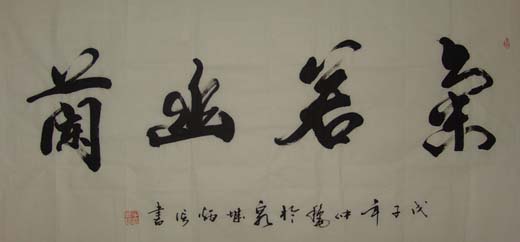 氣若幽蘭
戊子年仲秋於泉城書